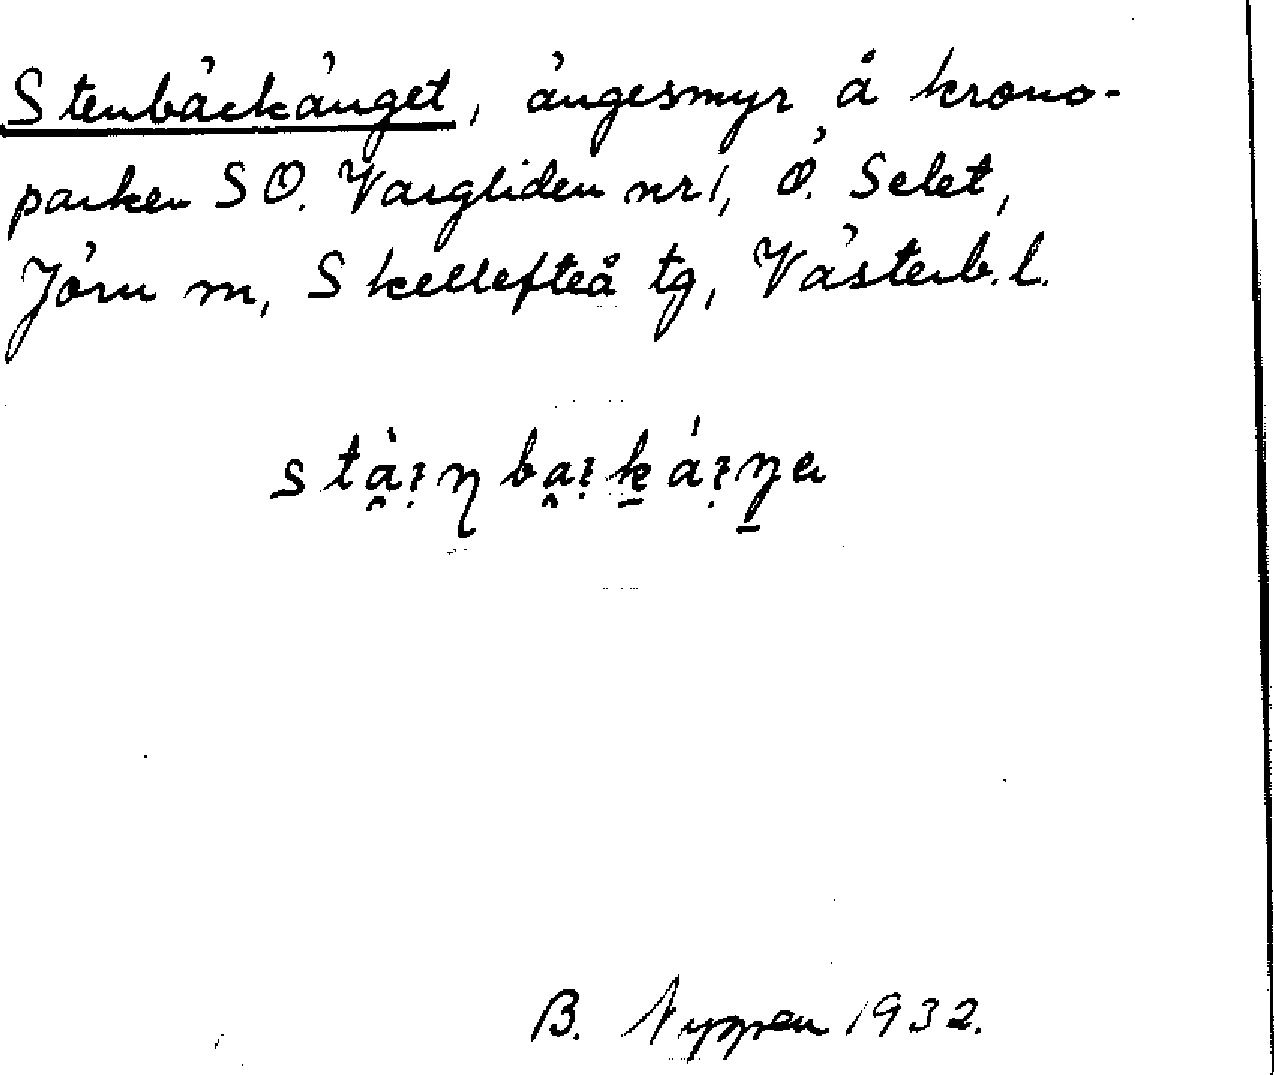 Stenbäckänget, ängesmyr å krono-
parken SO. Vargliden nr 1, Ö. Selet,
Jörn sn, Skellefteå tg, Västerb. l.
B. Nyppen 1932.